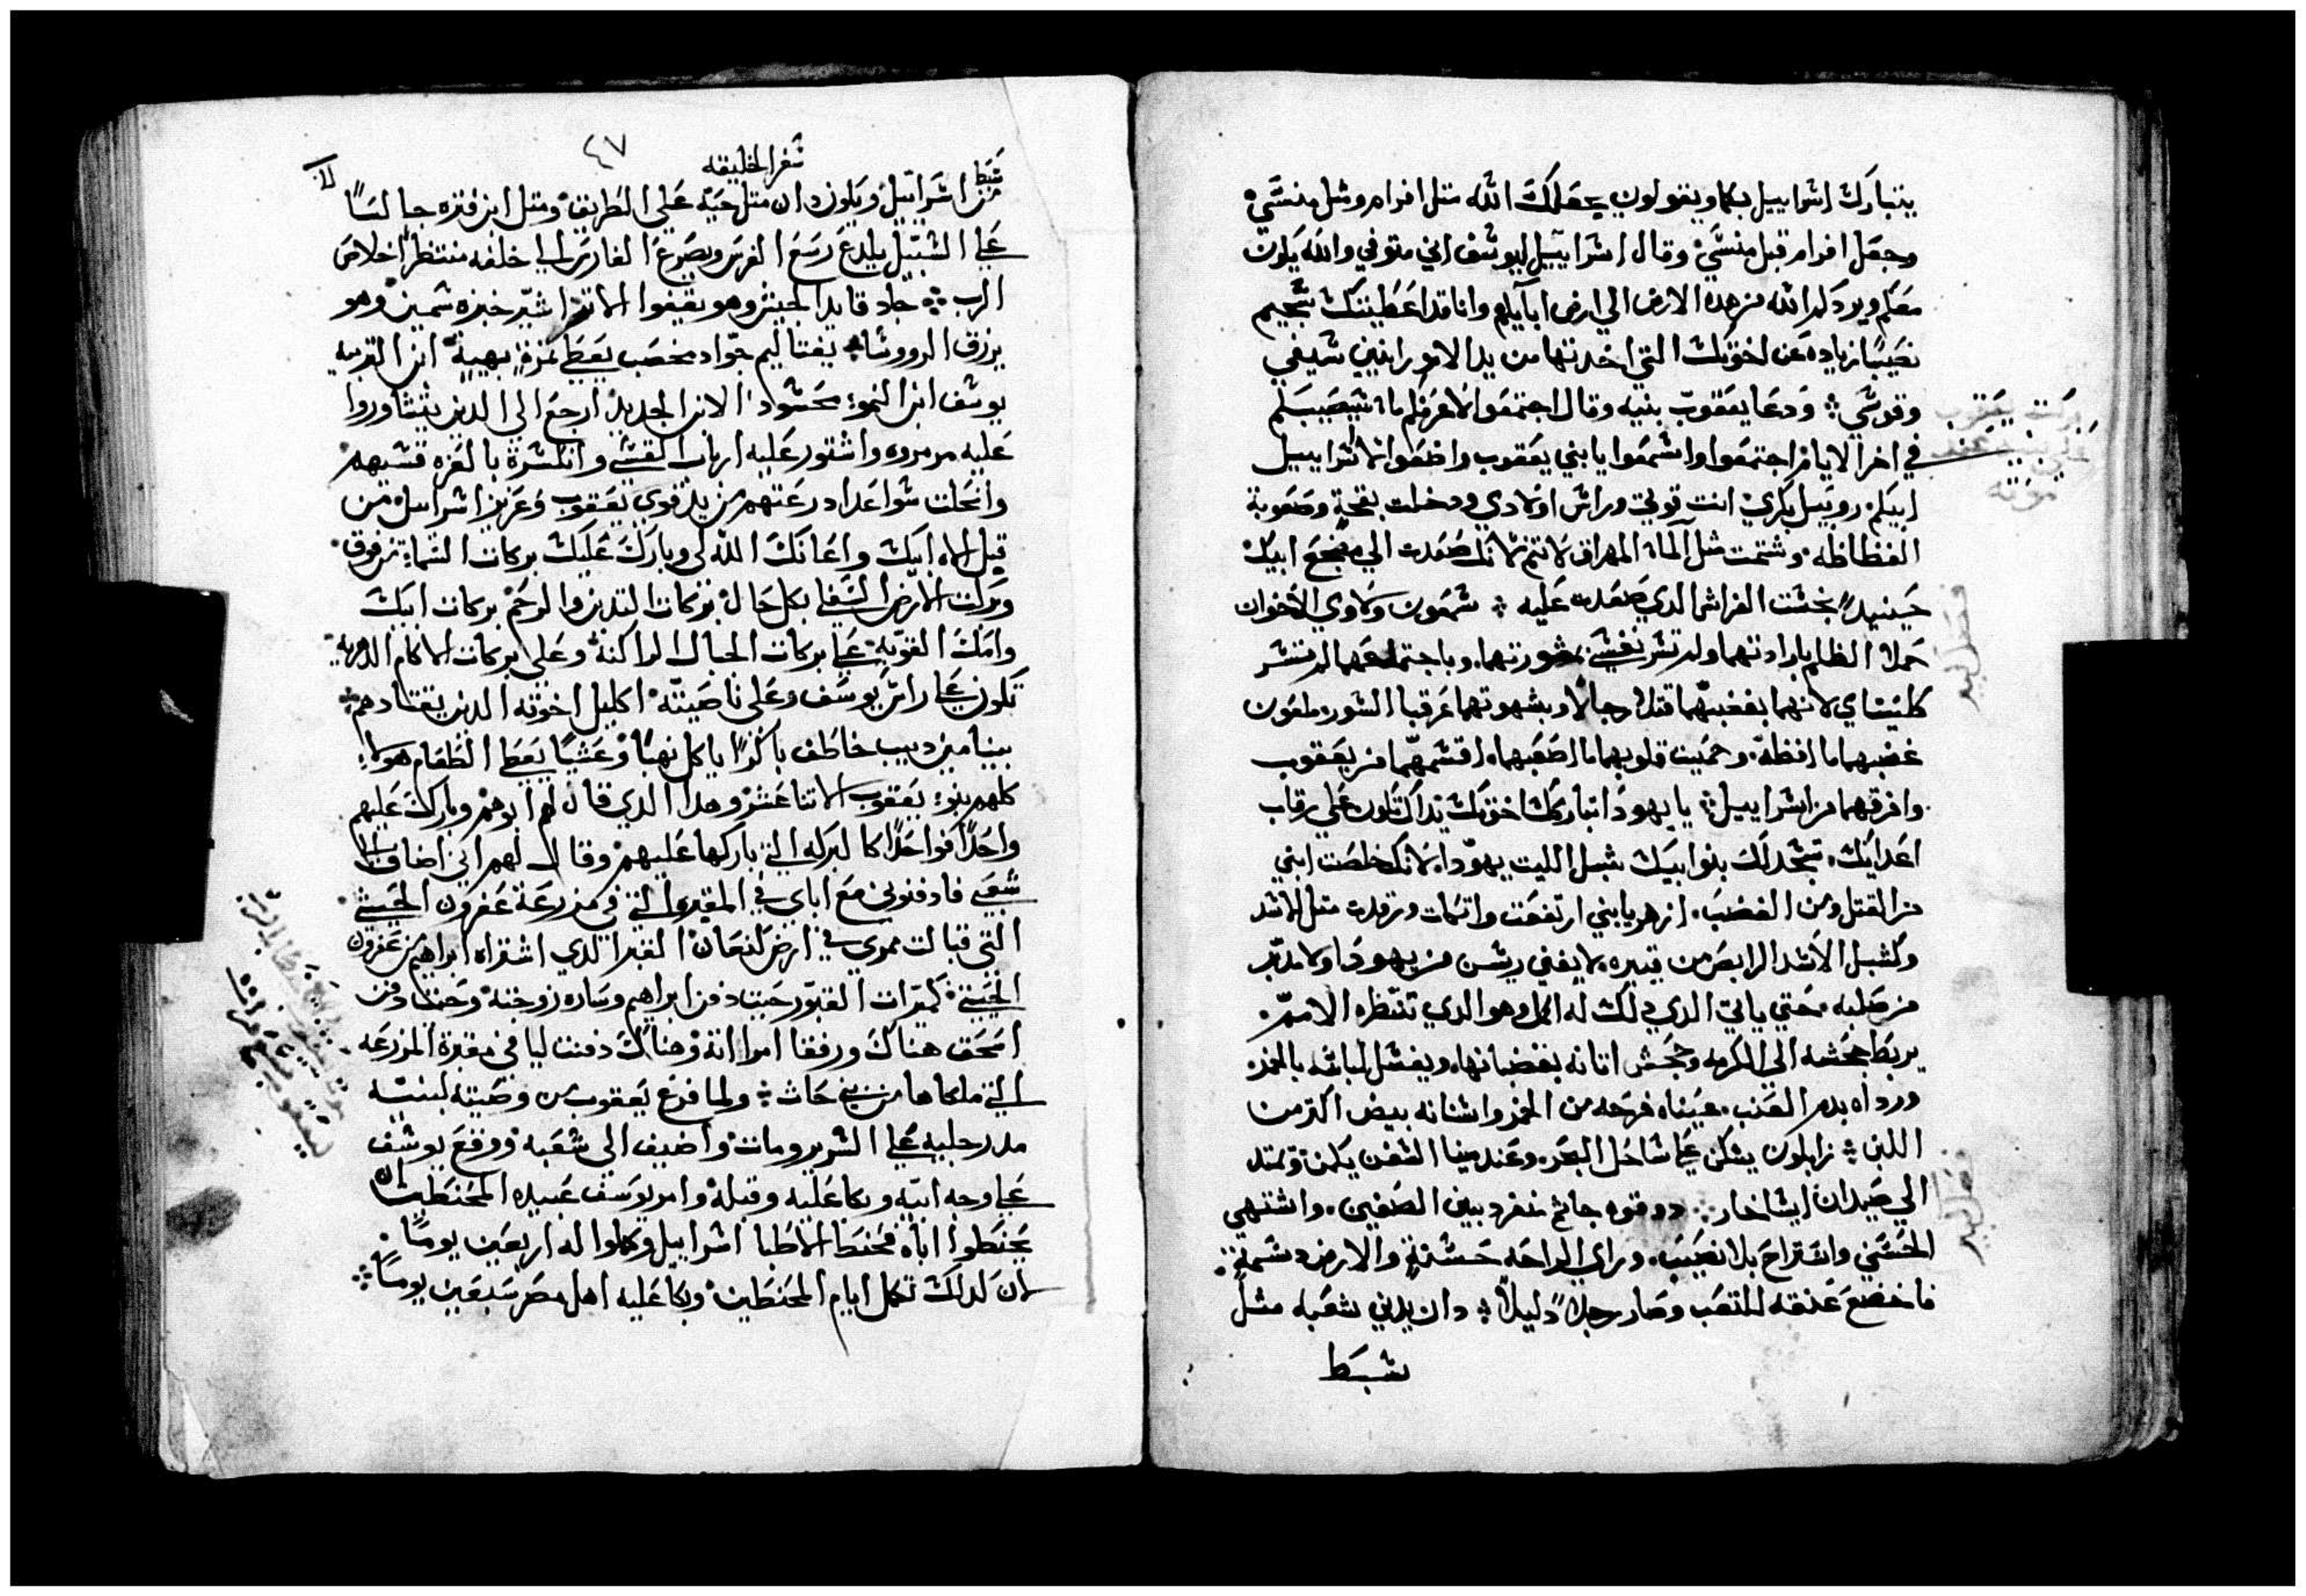 يتبارك اسراييل بكما ويقولون يجعلك الله متل افرام ومثل منسي
وجعل افرام قبل منسي وقال اسراييل ليوسف اني متوفي والله يكون
معكم ويردكم الله من هده الارض الي ارض ابآيكم وانا قد اعطيتك شجيم
نصيبًا زياده عن اخوتك التي اخدتها من يد الامورانيين بسيفي
وقوسي ودعا يعقوب بنيه وقال اجتمعوا لاعرفكم ما سيصيبكم
في اخر الايام اجتمعوا واسمعوا يا بني يعقوب واصغوا لاسراييل
ابيكم روبيل بكري انت قوتي وراس اولادي ودخلت بقحة وصعوبة
الفظاظه وشتمت مثل المآء المهراق لا تنم لانك صعدت الي مضجع ابيك
حينيدٍ نجست الفراش الدي صعدت عليه شمعون ولاوي الاخوان
كملا الظلم بارادتهما ولم تسر نفسي بمشورتهما وباجتماعهما لم تنسر
كليتاي لانهما بغضبهما قتلا رجالا وبشهوتهما عرقبا التور ملعون
غضبهما ما افظه وحميت قلوبهما ما اصعبهما اقسمهما من يعقوب
وافرقهما من اسراييل يا يهودا تباركك اخوتك يداك تكون علي رقاب
اعدايك تسجد لك بنوا ابيك شبل الليت يهودا لانك خلصت ابني
من القتل ومن الغضب ازهر يا بني ارتفعت واتكات ورقدت متل الاسد
وكشبل الاسد الرابض من يتيره لا يفني ريس من يهودا ولا مدبر
من صلبه حتي ياتي الدي دلك له الكل وهو الدي تنتظره الامم
يربط جحشه الي الكرمه وجحش اتانه بقضبانها ويغسل لباسه بالخمر
ورداه بدم العنب عيناه فرحه من الخمر واسنانه بيض اكتر من
اللبن زابلون يسكن علي ساحل البحر وعند مينا السفن يكمن ويمتد
الي صيدان ايساخار دو قوه جاثم منفرد بين الصفين واشتهي
الحسني واستراح بلا نصيب وراي الراحه حسنة والارض دسمة
فاخضع عنقه للتعب وصار رجلاً دليلاً دان يدين شعبه متل
سبط
٤٧
سفر الخليقه
سبط
من اسراييل ويكون دان متل حيّه علي الطريق ومتل ابن فتره جالسًا
علي السبيل يلدع رسع الفرس ويصرع الفارس الي خلفه منتظرًا خلاص
الرب جاد قايد الجيش وهو يقيفوا الاتر اشير خبزه سمين وهو
يرزق الرووسا نفتاليم جواد مخصب يعطي تمره بهية ابن التربيه
يوسف ابن النمو محسود الابن الجديد ارجع الي الدين يتشاوروا
عليه مرمروه واستقور عليه ارباب القسي وانكسرة بالعزه قسيهم
وانحلت سواعد ادرعتهم من يد قوي يعقوب وعزيز اسراييل من
قبل الاه ابيك واعانك الله لي وبارك عليك بركات السما من فوق
وبركت الارض السفلي بكل حال بركات التدين والرحم بركات ابيك
وامك القويه علي بركات الجبال الراكنه وعلي بركات الاكام الدهريه
تكون علي راس يوسف وعلي ناصيته اكليل اخوته الدين يقتادهم
بنيامين ديب خاطف باكرًا ياكل نهبًا وعشيًا يعطي الطعام هولاء
كلهم بنو يعقوب الاتنا عشر وهدا الدي قال لهم ابوهم وبارك عليهم
واحدًا فواحدًا كالبركه التي باركها عليهم وقال لهم اني اضاف الي
شعبي فادفنوني مع اباي في المقبره التي في مزرعة عفرون الحيتي
التي قبالت ممري في ارض كنعان القبر الدي اشتراه ابراهيم من عفرون
الحيتي كميرات القبور حيت دفن ابراهيم وساره زوجته وحيت دفن
اسحق هناك ورفقا امراته وهناك دفنت ليا في مقبرة المزرعه
التي ملكها من بني حات ولما فرغ يعقوب من وصيته لبنيه
مد رجليه علي السرير ومات واضيف الي شعبه ووقع يوسف
علي وجه ابيه وبكا عليه وقبله وامر يوسف عبيده المحنطين ان
يحنطوا اباه فحنط الاطبا اسراييل وكملوا له اربعين يومًا
لان كدلك تكمل ايام المحنطين وبكا عليه اهل مصر سبعين يومًا